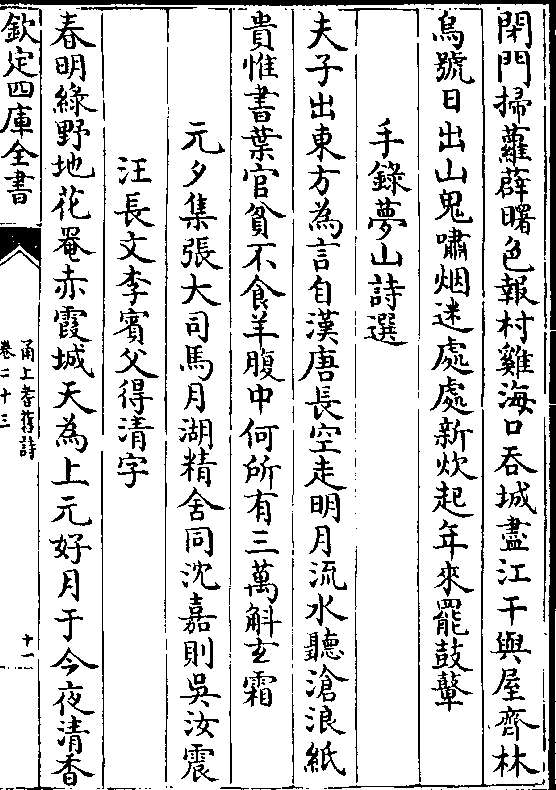 閉門掃蘿薜曙色報村雞海口吞城盡江干與屋齊林
烏號日出山鬼嘯烟迷處處新炊起年來罷鼓鼙
手錄夢山詩選
夫子出東方為言自漢唐長空走明月流水聽滄浪紙
貴惟書葉官貧不食羊腹中何所有三萬斛玄霜
元夕集張大司馬月湖精舍同沈嘉則吳汝震
汪長文李賓父得清字
春明綠野地花罨赤霞城天為上元好月于今夜清香
欽定四庫全書
甬上耆舊詩
卷二十三
十一